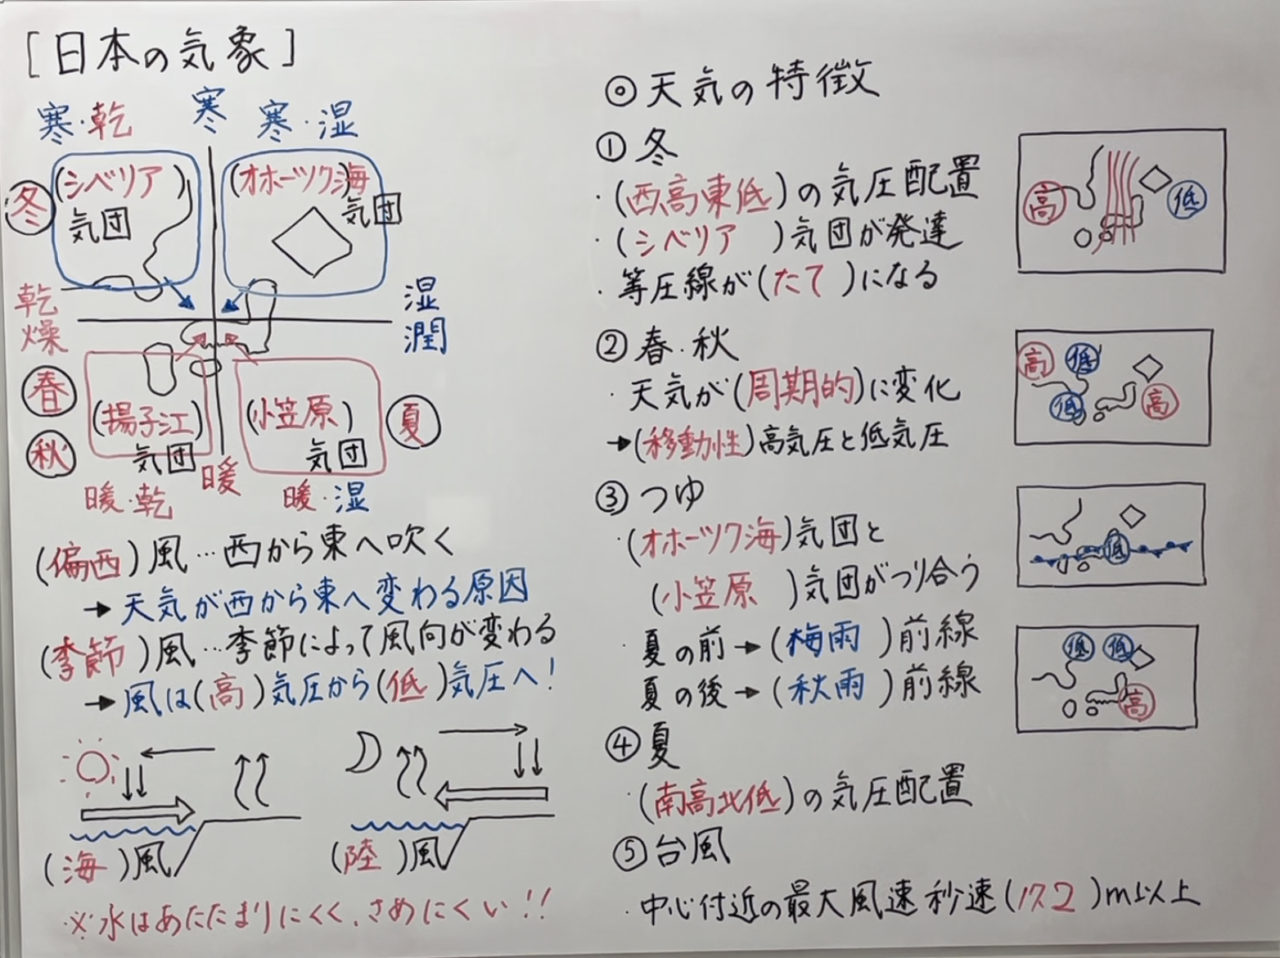 [日本の気象]
寒・乾
寒
寒・湿
冬
(シベリア)
気団
(オホーツク海)
気団
乾燥
湿潤
春
秋
(揚子江)
気団
(小笠原)
気団
夏
暖・乾
暖
暖・湿
(偏西)風…西から東へ吹く
→天気が西から東へ変わる原因
(季節)風…季節によって風向が変わる
→風は(高)気圧から(低)気圧へ!
(海)風
(陸)風
※水はあたたまりにくく、さめにくい!!
◎天気の特徴
①冬
・(西高東低)の気圧配置
・(シベリア)気団が発達
・等圧線が(たて)になる
高
低
②春・秋
・天気が(周期的)に変化
→(移動性)高気圧と低気圧
高
低
低
高
③つゆ
・(オホーツク海)気団と
(小笠原)気団がつり合う
・夏の前→(梅雨)前線
夏の後→(秋雨)前線
低
④夏
・(南高北低)の気圧配置
低
低
高
⑤台風
・中心付近の最大風速秒速(17.2)m以上